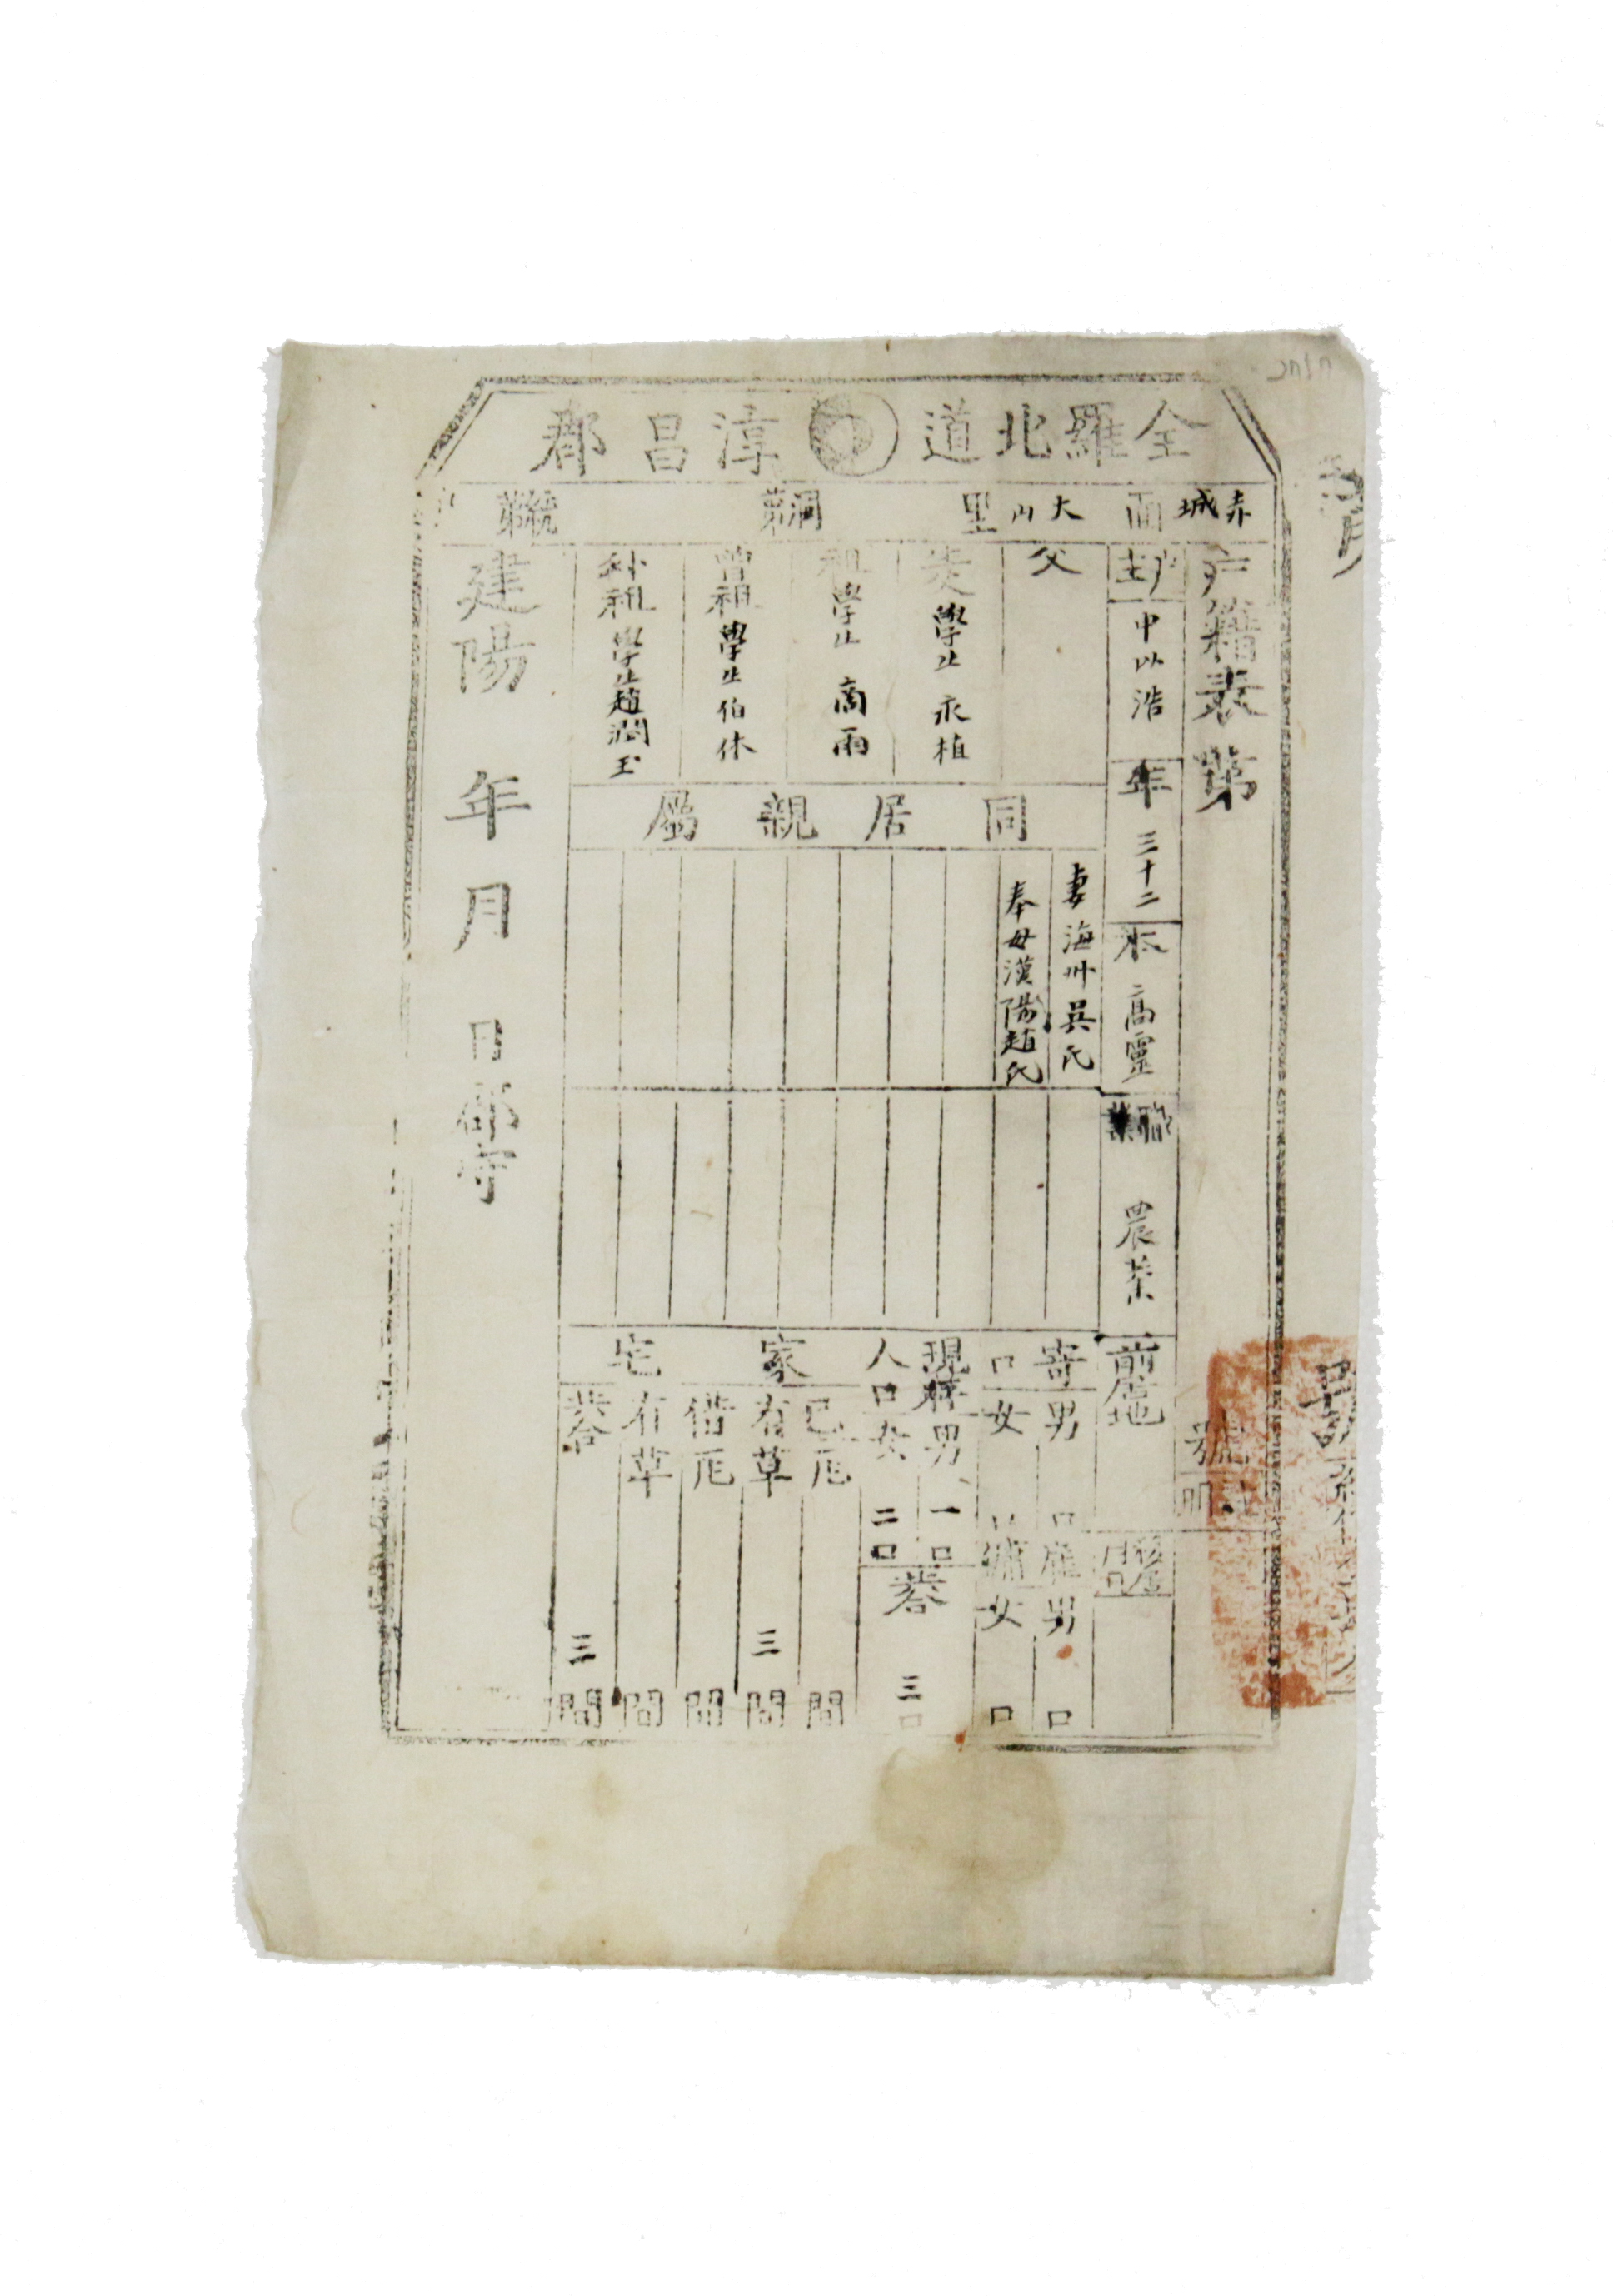 全羅北道 淳昌郡
赤城面 大山里 洞第 統第 戶
戶籍表 第 號
戶主 申以浩
年 三十二
本 高靈
職業 農業
前居地
移居
父
父 學生 永植
祖 學生 商雨
曾祖 學生 伯休
外祖 學生 趙潤玉
同居親屬
妻 海州吳氏
奉母 漢陽趙氏
寄口 男 口 女 口
雇男 口
傭女 口
現存人口 男 一口 女 二口
共合 三口
家宅
已有 瓦 間
草 三間
借有 瓦 間
草 間
共合 三間
建陽 年 月 日 郡守